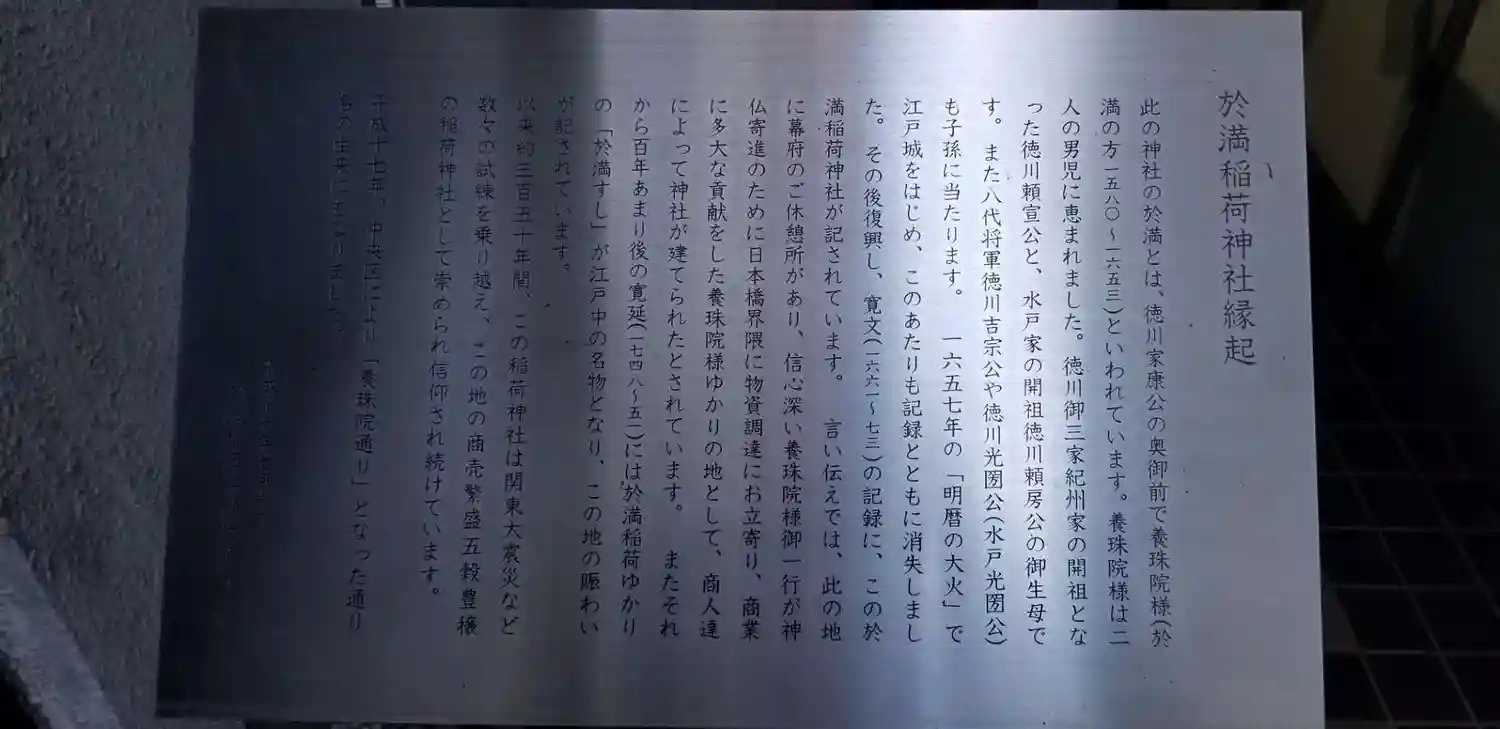 於満稲荷神社縁起
此の神社の於満とは、徳川家康公の奥御前で養珠院様(於
満の方一五八〇〜一六五三)といわれています。養珠院様は二
人の男児に恵まれました。徳川御三家紀州家の開祖とな
った徳川頼宣公と、水戸家の開祖徳川頼房公の御生母で
す。また八代将軍徳川吉宗公や徳川光圀公(水戸光圀公)
も子孫に当たります。 一六五七年の「明暦の大火」で
江戸城をはじめ、このあたりも記録とともに消失しまし
た。その後復興し、寛文(一六六一〜七三)の記録に、この於
満稲荷神社が記されています。 言い伝えでは、此の地
に幕府のご休憩所があり、信心深い養珠院様御一行が神
仏寄進のために日本橋界隈に物資調達にお立寄り、商業
に多大な貢献をした養珠院様ゆかりの地として、商人達
によって神社が建てられたとされています。 またそれ
から百年あまり後の寛延(一七四八〜五一)には於満稲荷ゆかり
の「於満すし」が江戸中の名物となり、この地の賑わい
が記されています。
以来約三百五十年間、この稲荷神社は関東大震災など
数々の試練を乗り越え、この地の商売繁盛五穀豊穣
の稲荷神社として崇められ信仰され続けています。
平成十七年、中央区により「養珠院通り」となった通り
名の由来にもなりました。